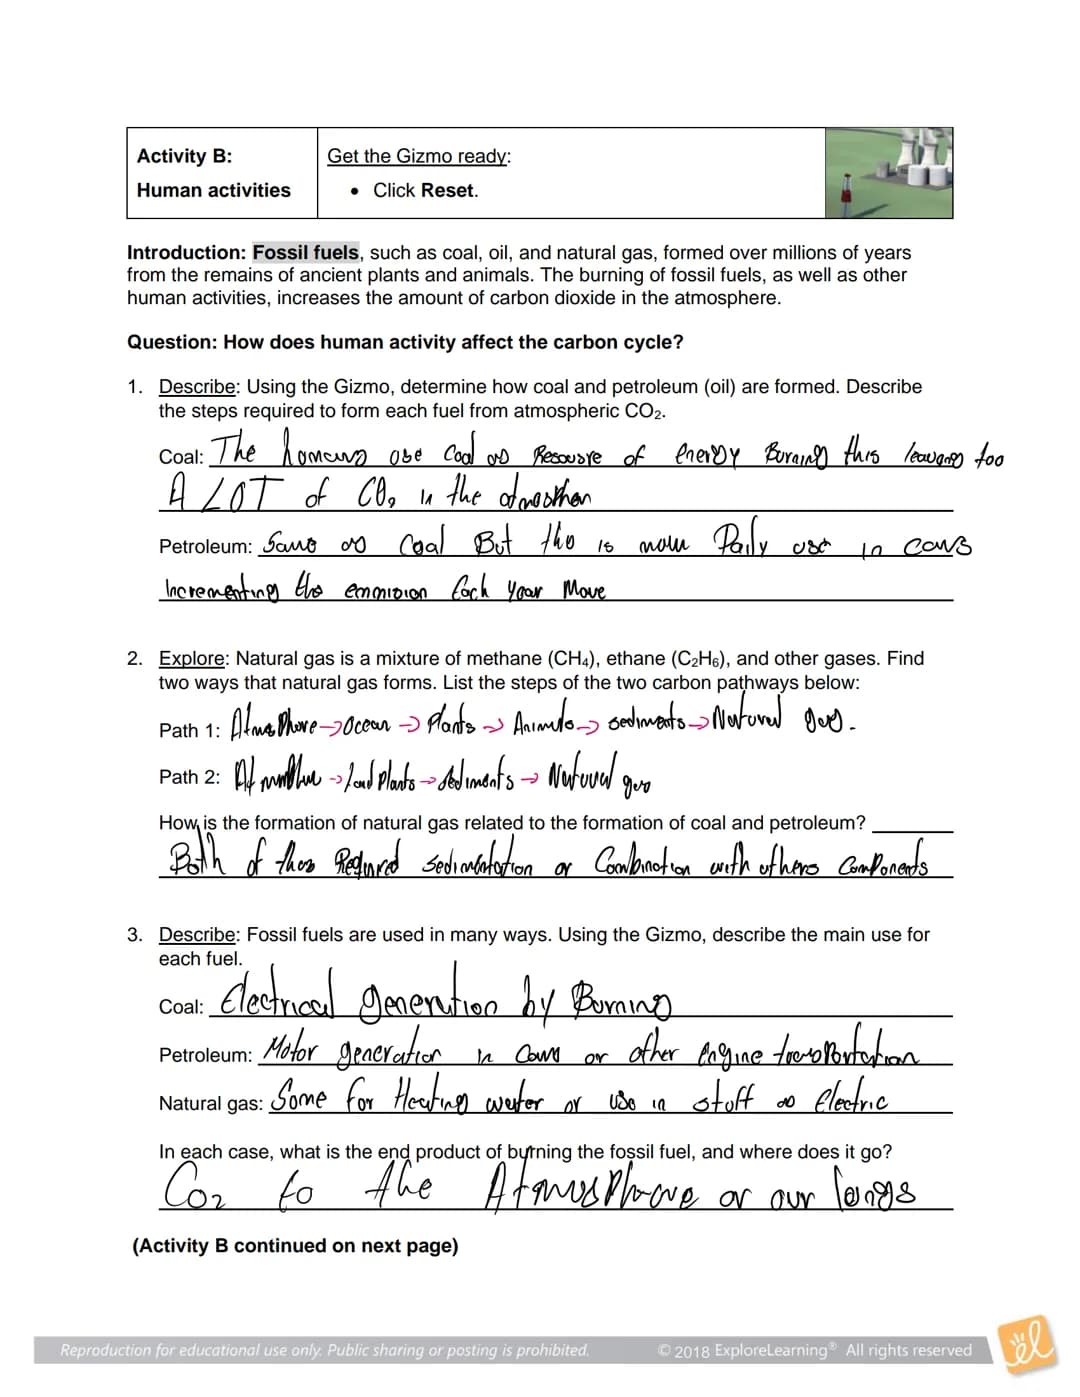 Activity B:
Human activities
Get the Gizmo ready:
• Click Reset.
Introduction: Fossil fuels, such as coal, oil, and natural gas, formed over millions of years
from the remains of ancient plants and animals. The burning of fossil fuels, as well as other
human activities, increases the amount of carbon dioxide in the atmosphere.
Question: How does human activity affect the carbon cycle?
1. Describe: Using the Gizmo, determine how coal and petroleum (oil) are formed. Describe
the steps required to form each fuel from atmospheric CO2.
Coal: The humans use Coal as Resousre of energy Burning this leaving too
A LOT of CO2 in the
Petroleum: Same as Coal But the is more Daily use in cars
Incrementing the emmision Each year Move
2. Explore: Natural gas is a mixture of methane (CH4), ethane (C2H6), and other gases. Find
two ways that natural gas forms. List the steps of the two carbon pathways below:
Path 1: AtmosPhere→Ocean → Plants → Animals → sediments → Natural gas.
Path 2: → Land Plants → sediments → Natural gas
How is the formation of natural gas related to the formation of coal and petroleum?
Both of thes Required sedimentation or Combination with others ComPonents
3. Describe: Fossil fuels are used in many ways. Using the Gizmo, describe the main use for
each fuel.
Coal: Electrical generation by Burning
Petroleum: Motor generation in Cars or other Engine
Natural gas: Some for Heating water or use in stuff as Electric
In each case, what is the end product of burning the fossil fuel, and where does it go?
Co2 to the AtmusPhere or our lungs
(Activity B continued on next page)
Reproduction for educational use only. Public sharing or posting is prohibited.
© 2018 ExploreLearning® All rights reserved
el